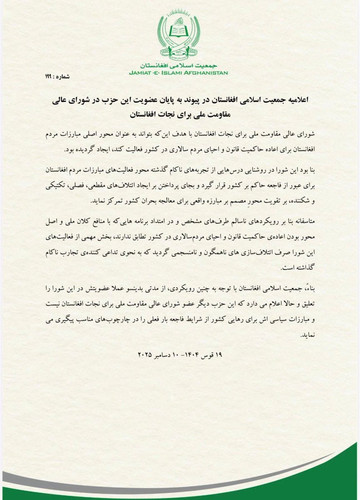 جمعیت اسلامی افغانستان
JAMIAT-E- ISLAMI AFGHANISTAN
شماره : ۱۹۹
اعلامیه جمعیت اسلامی افغانستان در پیوند به پایان عضویت این حزب در شورای عالی
مقاومت ملی برای نجات افغانستان
شورای عالی مقاومت ملی برای نجات افغانستان با هدف این‌که بتواند به عنوان محور اصلی مبارزات مردم
افغانستان برای اعاده حاکمیت قانون و احیای مردم سالاری در کشور فعالیت کند، ایجاد گردیده بود.
بنا بود این شورا در روشنایی درس‌هایی از تجربه‌های ناکام گذشته محور فعالیت‌های مبارزات مردم افغانستان
برای عبور از فاجعه حاکم بر کشور قرار گیرد و بجای پرداختن بر ایجاد ائتلاف‌های مقطعی، فصلی، تکتیکی
و شکننده، بر تقویت محور مصمم بر مبارزه واقعی برای معالجه بحران کشور تمرکز نماید.
متاسفانه بنا بر رویکردهای ناسالم طرف‌های مشخص و در امتداد برنامه هایی‌که با منافع کلان ملی و اصل
محور بودن اعاده‌ی حاکمیت قانون و احیای مردم‌سالاری در کشور تطابق ندارند، بخش مهمی از فعالیت‌های
این شورا صرف ائتلاف‌سازی های ناهمگون و نامنسجمی گردید که به نحوی تداعی کننده‌ی تجارب ناکام
گذاشته است.
بناءً جمعیت اسلامی افغانستان با توجه به چنین رویکردی، از مدتی بدینسو عملا عضویتش در این شورا را
تعلیق و حالا اعلام می دارد که این حزب دیگر عضو شورای عالی مقاومت ملی برای نجات افغانستان نیست
و مبارزات سیاسی اش برای رهایی کشور از شرایط فاجعه بار فعلی را در چارچوب‌های مناسب پیگیری می
نماید.
۱۹ قوس ۱۴۰۴- ۱۰ دسامبر ۲۰۲۵